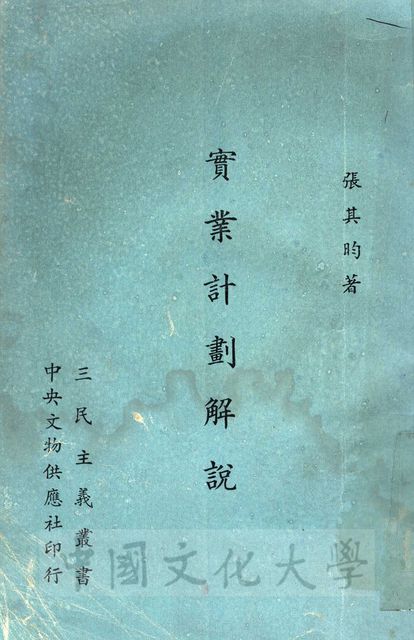 張其昀著
實業計劃解說
三民主義叢書
中央文物供應社印行
中國文化大學